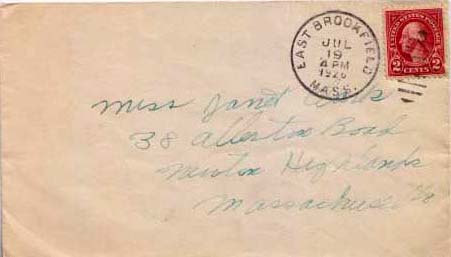 EAST BROOKFIELD
JUL
19
4 PM
1926
MASS.
UNITED STATES POSTAGE
2 CENTS 2
Miss Janet
38 Allerton Road
Newton Highlands
Massachusetts